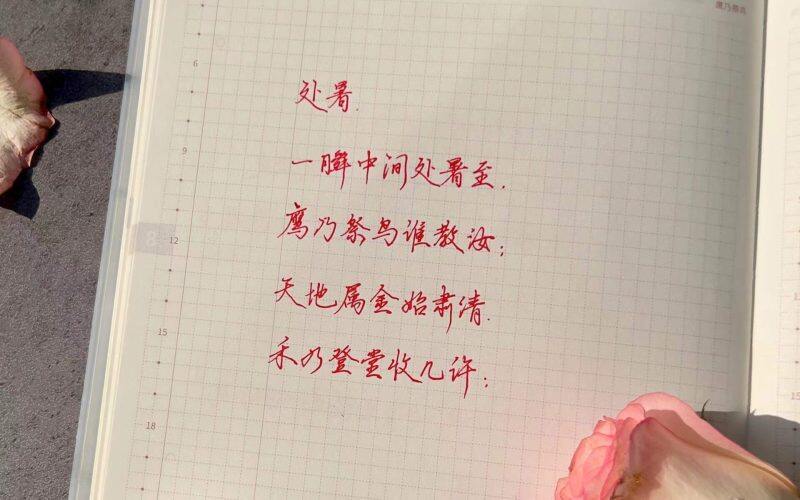 鹰乃祭鸟
处暑.
一瞬中间处暑至.
鹰乃祭鸟谁教汝;
天地属金始肃清.
禾乃登堂收几许;
6
9
8
12
15
18
15